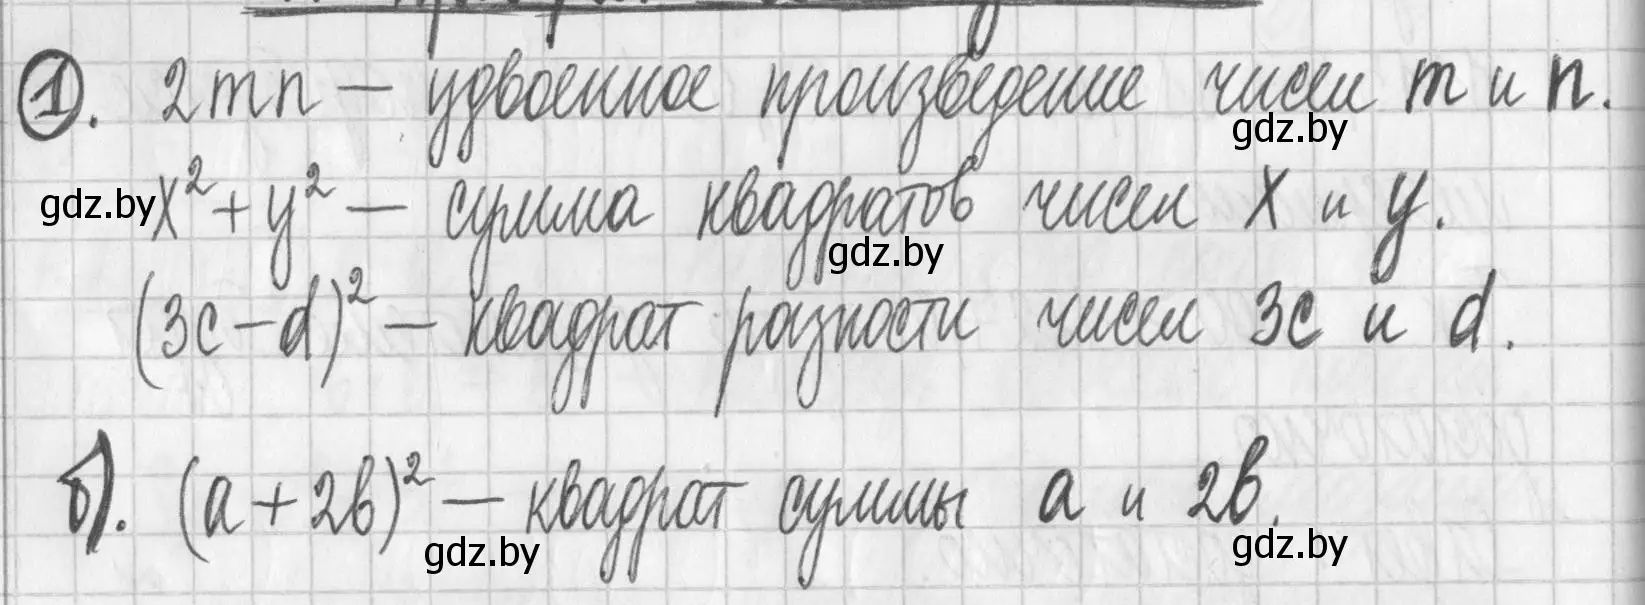 1. 2mn — удвоенное произведение чисел m и n.
gdz.by
gdz.by x² + y² — сумма квадратов чисел x и y.
gdz.by
(3c - d)² — квадрат разности чисел 3c и d.
б). (a + 2b)² — квадрат суммы a и 2b.
gdz.by gdz.by